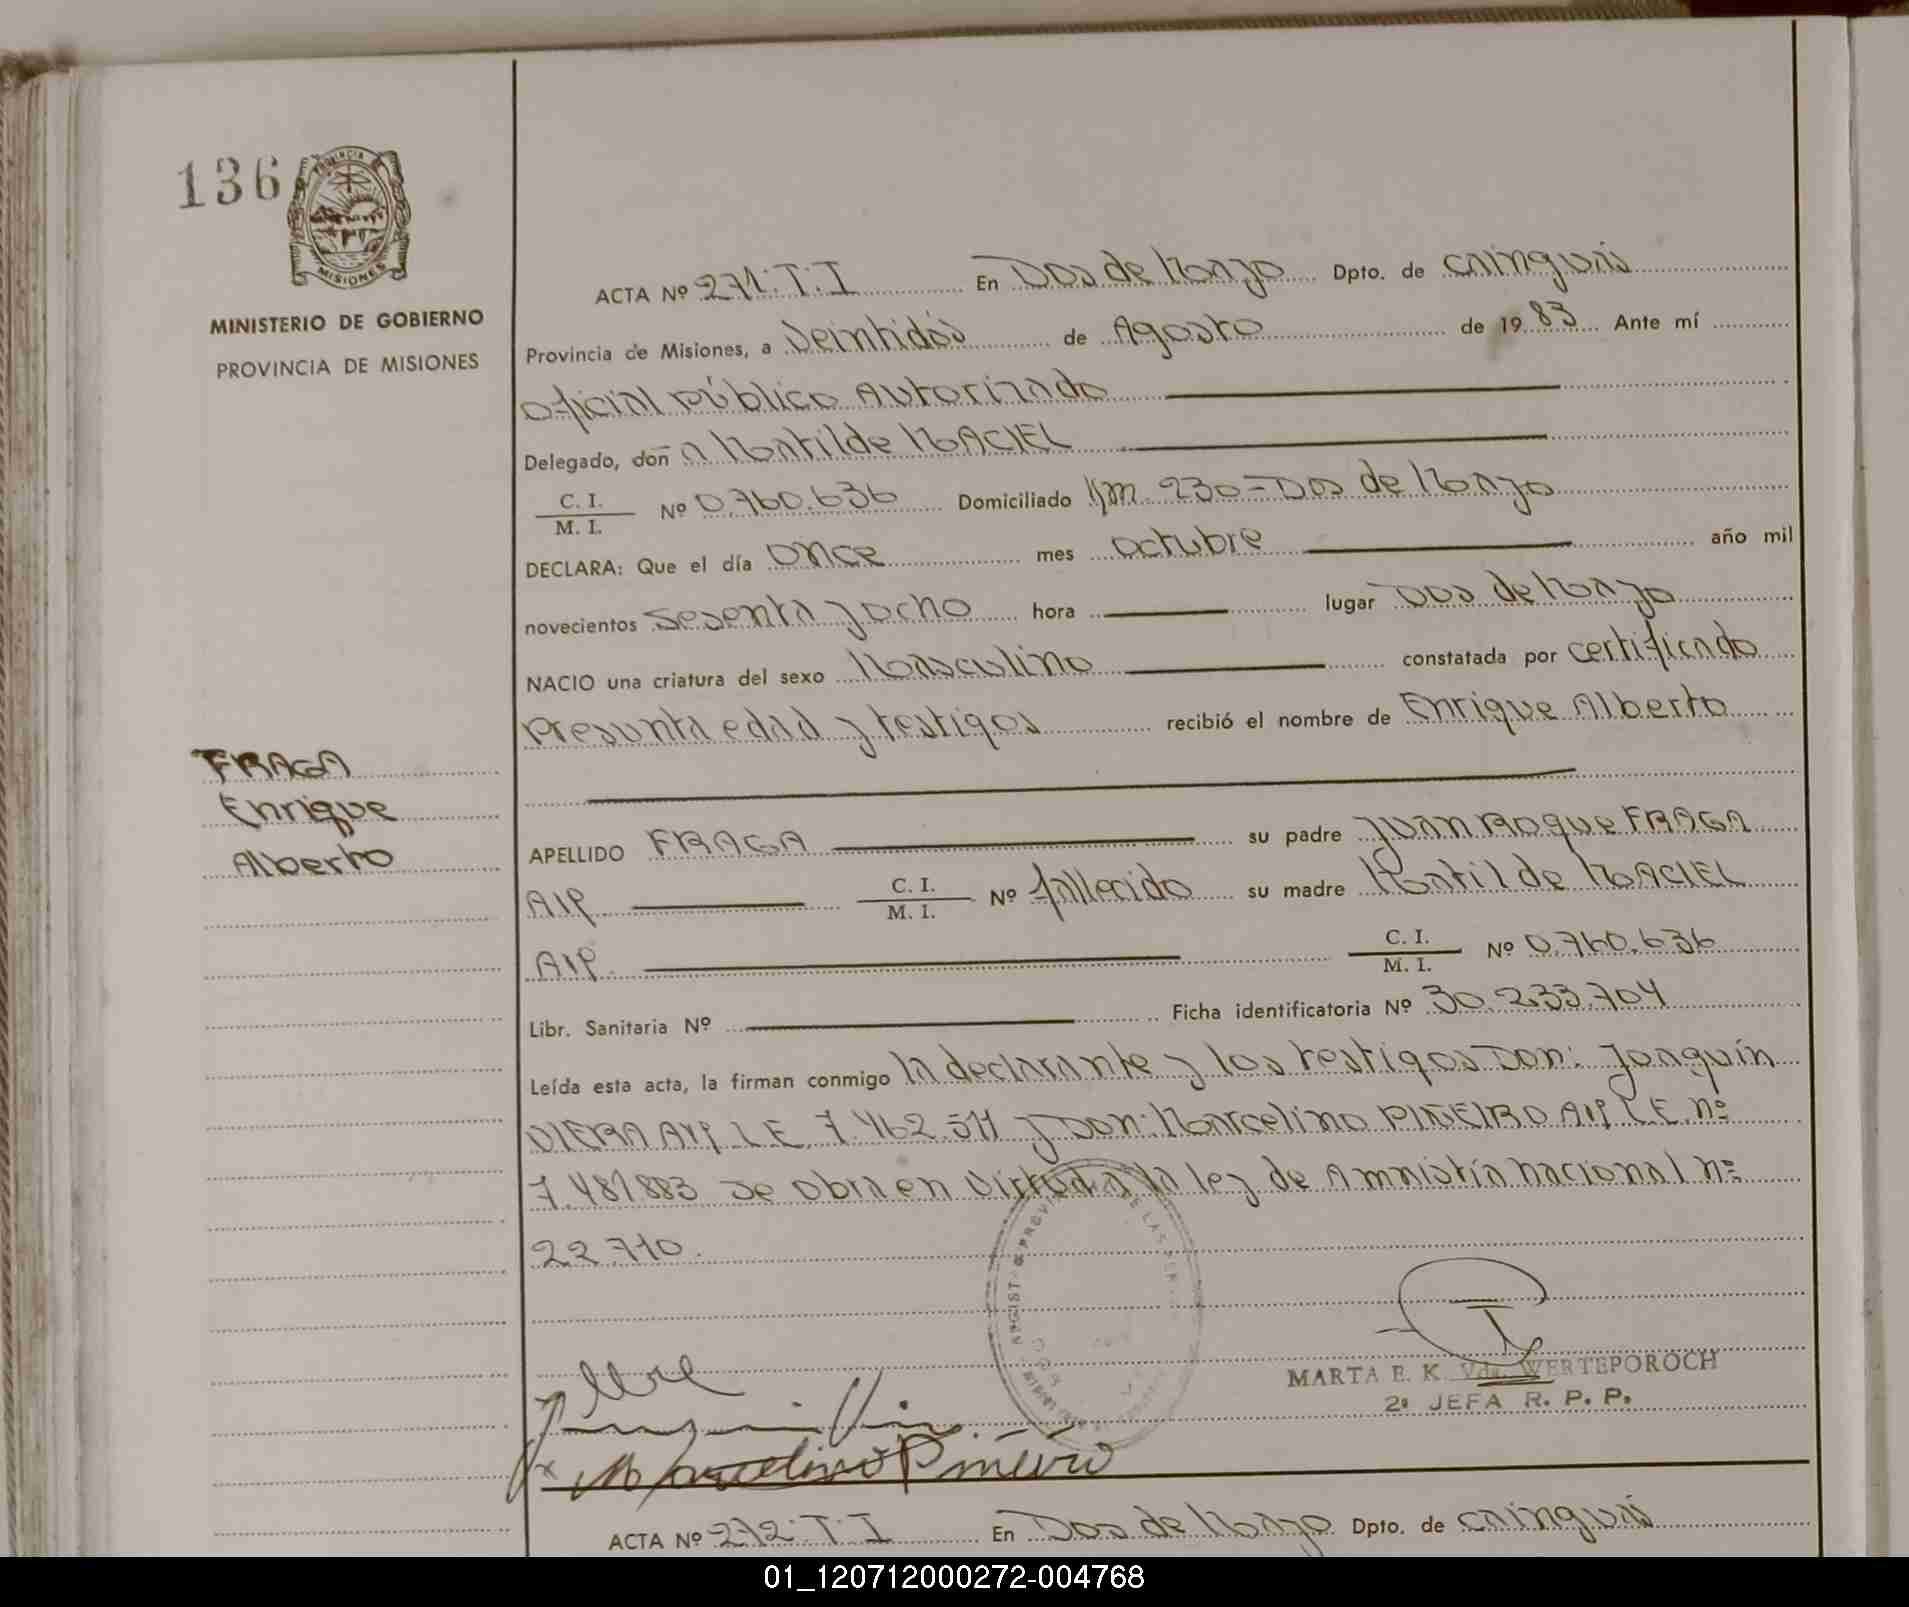 136
PROVINCIA
MISIONES
MINISTERIO DE GOBIERNO
PROVINCIA DE MISIONES
ACTA Nº 271.T.I En Dos de Mayo Dpto. de Cainguás
Provincia de Misiones, a Veintidós de Agosto de 1983 Ante mí
Oficial Público Autorizado
Delegado, don a Matilde MACIEL
C. I.
M. I. Nº 0.760.636 Domiciliado Km. 230 - Dos de Mayo
DECLARA: Que el día once mes octubre año mil
novecientos sesenta y ocho hora lugar Dos de Mayo
NACIO una criatura del sexo Masculino constatada por certificado
presunta edad y testigos recibió el nombre de Enrique Alberto
FRAGA
Enrique
Alberto
APELLIDO FRAGA su padre Juan Roque FRAGA
Aip C. I.
M. I. Nº fallecido su madre Matilde MACIEL
Aip. C. I.
M. I. Nº 0.760.636
Libr. Sanitaria Nº Ficha identificatoria Nº 30.233.704
Leída esta acta, la firman conmigo la declarante y los testigos Don: Joaquín
VIERA Aip. L.E. 7.462.511 y Don: Marcelino PIÑEIRO Aip L.E. nº
7.481883 se obra en virtud a la ley de Amnistía nacional nº
22.710.
MARTA E. K. Vda. WERTEPOROCH
2ª JEFA R. P. P.
Marcelino Piñeiro
ACTA Nº 272.T.I En Dos de Mayo Dpto. de Cainguás
01_120712000272-004768